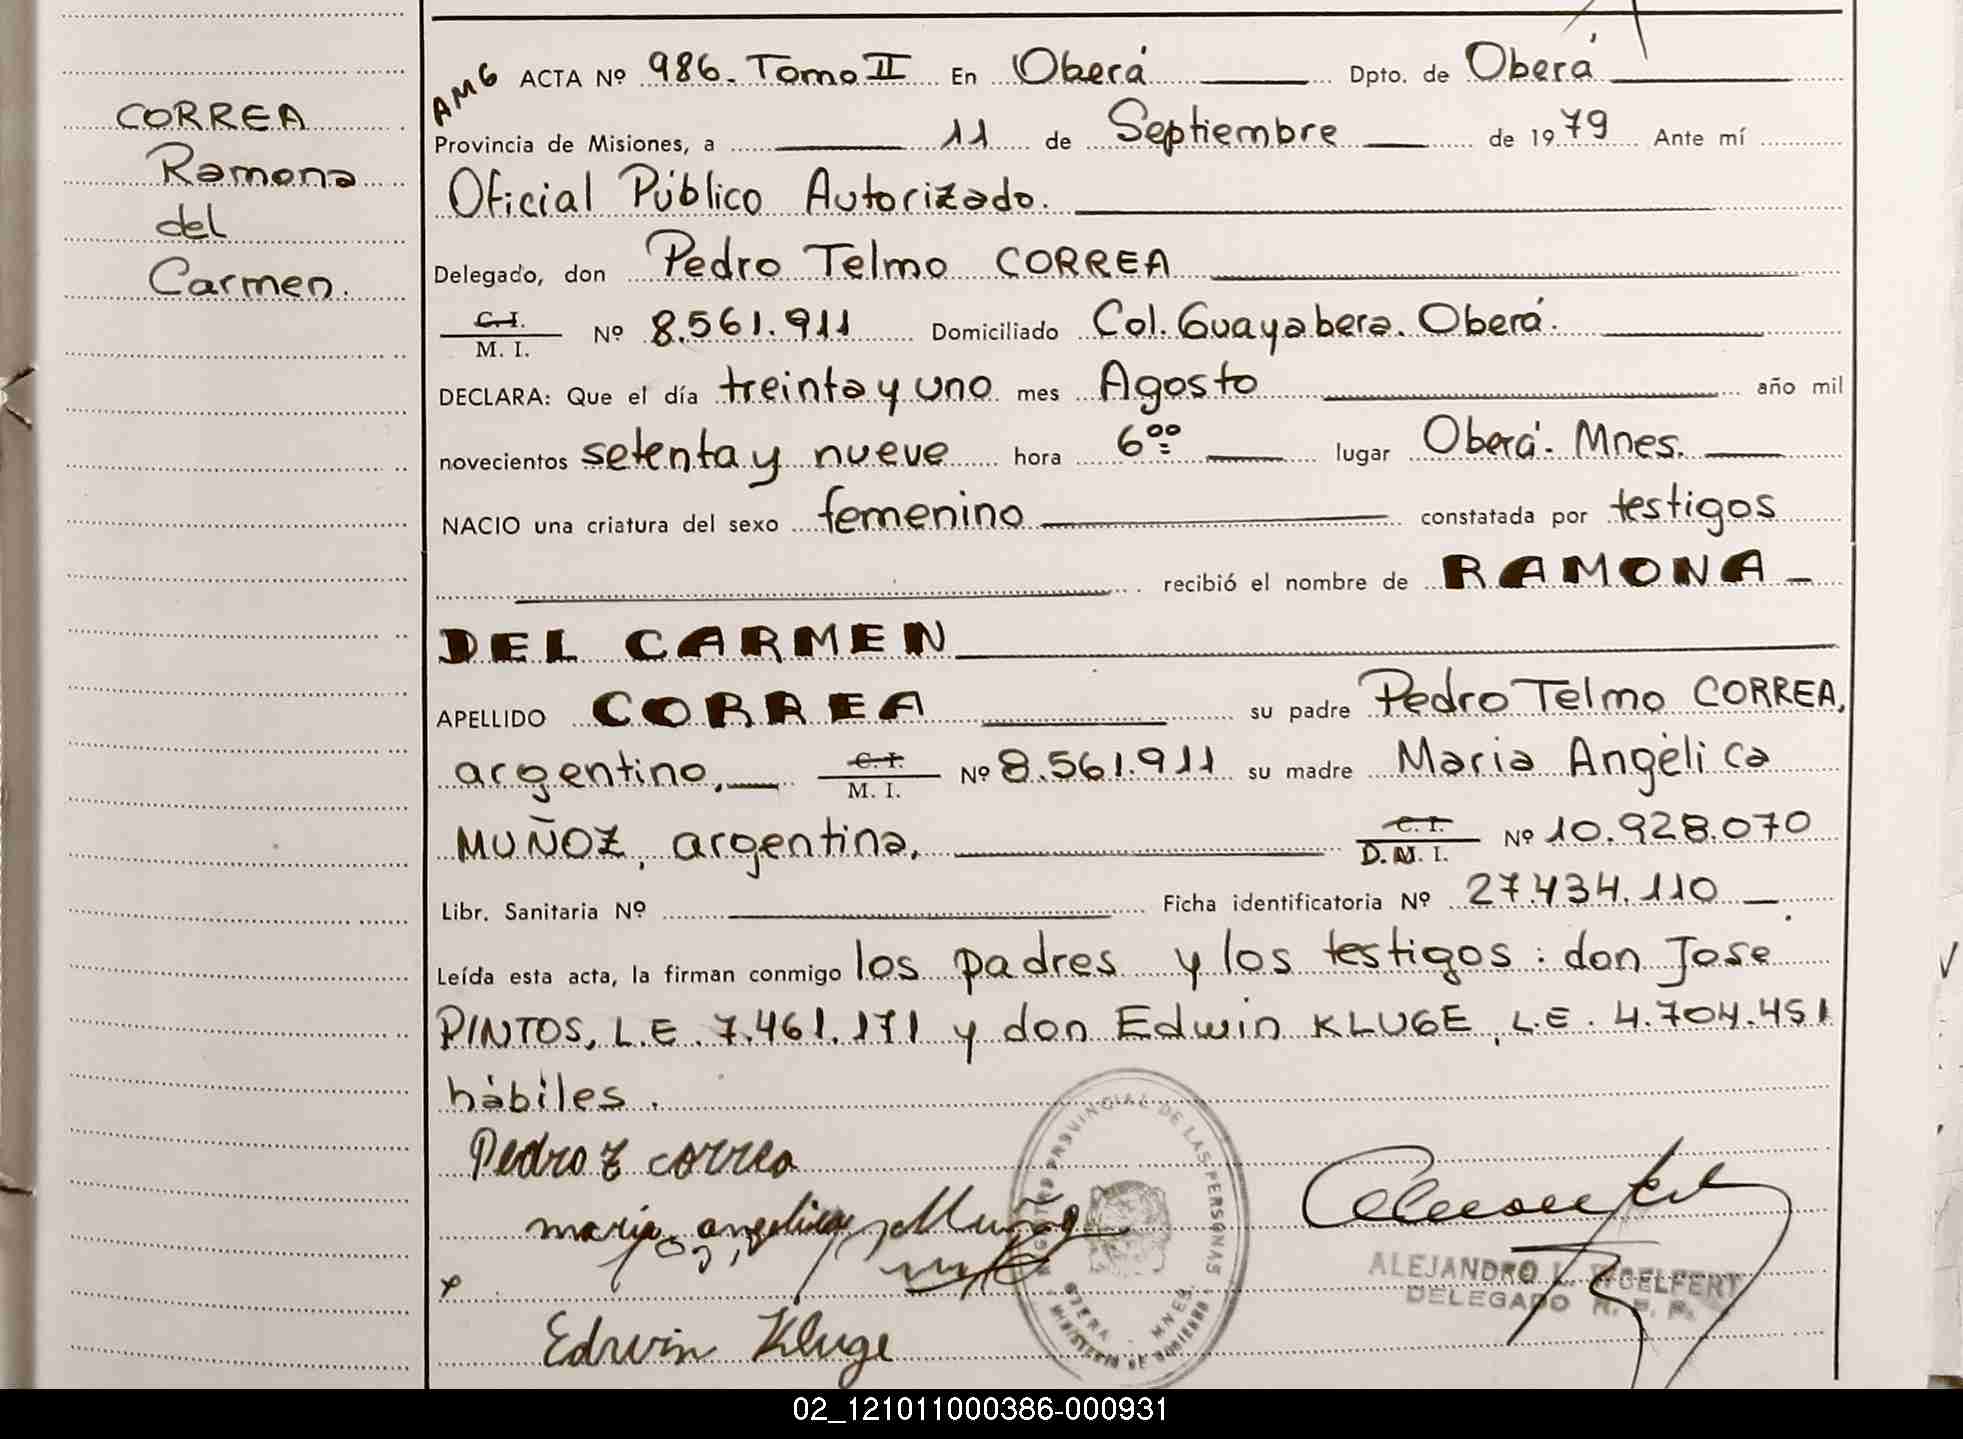 CORREA
Ramona
del
Carmen.
AMG ACTA Nº 986. Tomo II En Oberá Dpto. de Oberá
Provincia de Misiones, a 11 de Septiembre de 1979 Ante mí
Oficial Público Autorizado.
Delegado, don Pedro Telmo CORREA
C.I. M. I. Nº 8.561.911 Domiciliado Col. Guayabera. Oberá.
DECLARA: Que el día treinta y uno mes Agosto año mil
novecientos setenta y nueve hora 6⁰⁰ lugar Oberá. Mnes.
NACIO una criatura del sexo femenino constatada por testigos
recibió el nombre de RAMONA
DEL CARMEN
APELLIDO CORREA su padre Pedro Telmo CORREA,
argentino, C.I. M. I. Nº 8.561.911 su madre Maria Angélica
MUÑOZ, argentina, C.I. D.N.I. Nº 10.928.070
Libr. Sanitaria Nº Ficha identificatoria Nº 27.434.110
Leída esta acta, la firman conmigo los padres y los testigos: don Jose
PINTOS, L.E. 7.461.171 y don Edwin KLUGE, L.E. 4.704.451
hábiles.
Pedro T correa
maria angelica Muñoz
Edwin Kluge
REGISTRO PROVINCIAL DE LAS PERSONAS
OBERA - MNES.
MINISTERIO DE GOBIERNO
ALEJANDRO L. WOELFERT
DELEGADO R. P. P.
02_121011000386-000931